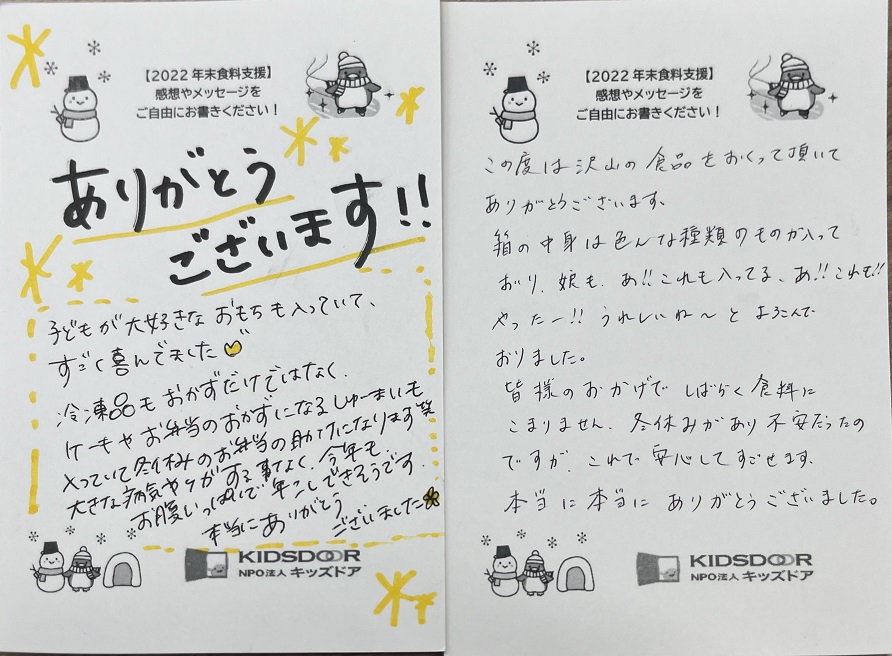 【2022 年末食料支援】
感想やメッセージを
ご自由にお書きください！
ありがとう
ございます!!
子どもが大好きなおもちも入っていて、
すごく喜んでました
冷凍品もおかずだけではなく、
ケーキやお弁当のおかずになるしゅーまいも
入っていて冬休みのお弁当の助けになります笑
大きな病気やケガする事なく、今年も
お腹いっぱいで年こしできそうです。
本当にありがとう
ございました
KIDSDOOR
NPO法人 キッズドア
【2022 年末食料支援】
感想やメッセージを
ご自由にお書きください！
この度は沢山の食品をおくって頂いて
ありがとうございます、
箱の中身は色んな種類のものが入って
おり、娘も、あ!!これも入ってる、あ!!これも!!
やったー!!うれしいね〜とよろこんで
おりました。
皆様のおかげでしばらく食料に
こまりません、冬休みがあり不安だったの
ですが、これで安心してすごせます、
本当に本当にありがとうございました。
KIDSDOOR
NPO法人 キッズドア